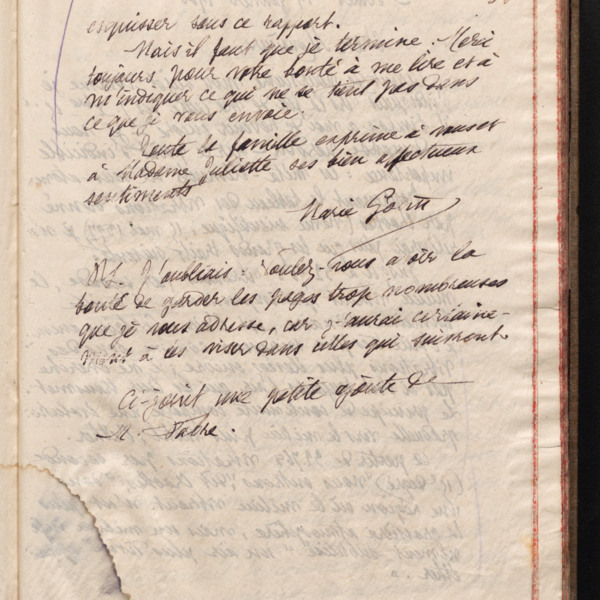 esquisser sous ce rapport.
Mais il faut que je termine. Merci
toujours pour votre bonté à me lire et à
m'indiquer ce qui ne se tient pas dans
ce que je vous envoie.
Toute la famille exprime à vous et
à Madame Juliette ses bien affectueux
sentiments
Marie
P.S. J'oubliais : voulez-vous avoir la
bonté de garder les pages trop nombreuses
que je vous adresse, car j'aurai certaine-
ment à les viser dans celles qui suivront
Ci-joint une petite ajoute de
M. Fabre.